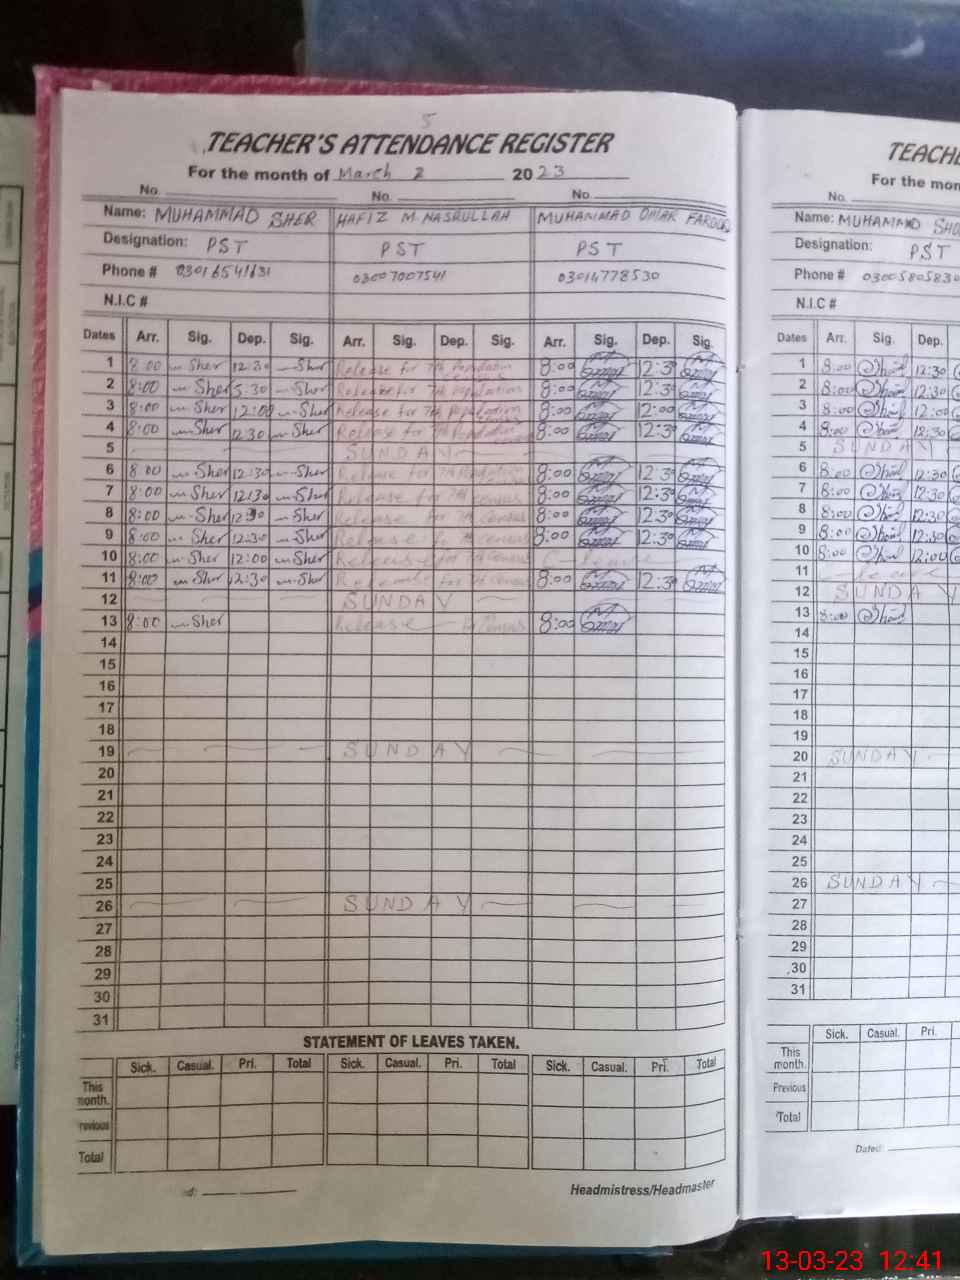 5
TEACHER'S ATTENDANCE REGISTER
For the month of March 2 2023
No. No. No.
Name: MUHAMMAD SHER HAFIZ M. NASRULLAH MUHAMMAD OMAR FAROOQ
Designation: PST PST PST
Phone # 03016541631 03007007541 03014778530
N.I.C #
Dates Arr. Sig. Dep. Sig. Arr. Sig. Dep. Sig. Arr. Sig. Dep. Sig.
1 8:00 m-Sher 12:30 m-Sher Release for 7th Population 8:00 12:30
2 8:00 m-Sher 5:30 m-Sher Release for 7th Population 8:00 12:30
3 8:00 m-Sher 12:00 m-Sher Release for 7th Population 8:00 12:00
4 8:00 m-Sher 12:30 m-Sher Release for 7th Population 8:00 12:30
5 SUNDAY
6 8:00 m-Sher 12:30 m-Sher Release for 7th Population 8:00 12:30
7 8:00 m-Sher 12:30 m-Sher Release for 7th Census 8:00 12:30
8 8:00 m-Sher 12:30 m-Sher Release for 7th Census 8:00 12:30
9 8:00 m-Sher 12:30 m-Sher Release for 7th Census 8:00 12:30
10 8:00 m-Sher 12:00 m-Sher Release for 7th Census C leave
11 8:00 m-Sher 12:30 m-Sher Release for 7th Census 8:00 12:30
12 SUNDAY
13 8:00 m-Sher Release Census 8:00
14
15
16
17
18
19 SUNDAY
20
21
22
23
24
25
26 SUNDAY
27
28
29
30
31
STATEMENT OF LEAVES TAKEN.
Sick. Casual. Pri. Total Sick. Casual. Pri. Total Sick. Casual. Pri. Total
This month.
Previous
Total
Headmistress/Headmaster
TEACHE
For the mon
No.
Name: MUHAMMD SHO
Designation: PST
Phone # 0300580583
N.I.C #
Dates Arr. Sig. Dep.
1 8:00 12:30
2 8:00 12:30
3 8:00 12:00
4 8:00 12:30
5 SUNDAY
6 8:00 12:30
7 8:00 12:30
8 8:00 12:30
9 8:00 12:30
10 8:00 12:00
11 leave
12 SUNDAY
13 8:00
14
15
16
17
18
19
20 SUNDAY
21
22
23
24
25
26 SUNDAY
27
28
29
30
31
Sick. Casual. Pri.
This month.
Previous
Total
Dated:
13-03-23 12:41